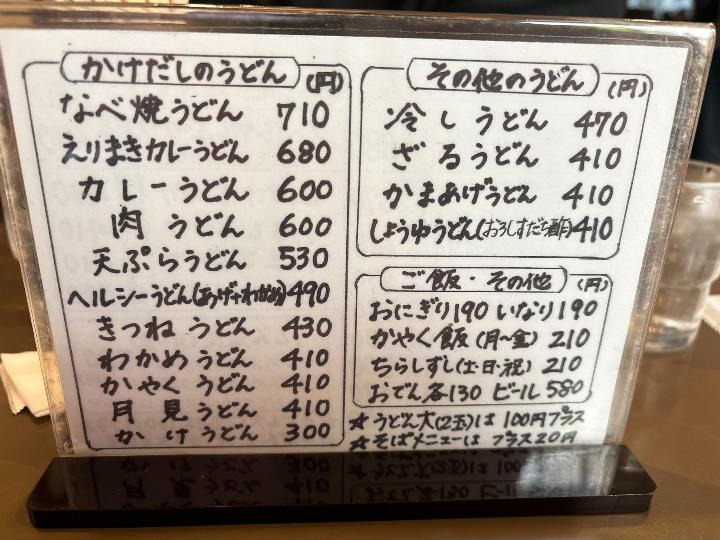 かけだしのうどん (円)
なべ焼うどん 710
えりまきカレーうどん 680
カレーうどん 600
肉うどん 600
天ぷらうどん 530
ヘルシーうどん(あげ+わかめ) 490
きつねうどん 430
わかめうどん 410
かやくうどん 410
月見うどん 410
かけうどん 300
その他のうどん (円)
冷しうどん 470
ざるうどん 410
かまあげうどん 410
しょうゆうどん(おろしすだち酢) 410
ご飯・その他 (円)
おにぎり190 いなり190
かやく飯(月〜金) 210
ちらしずし(土・日・祝) 210
おでん各130 ビール580
☆うどん大(2玉)は100円プラス
☆そばメニューはプラス20円